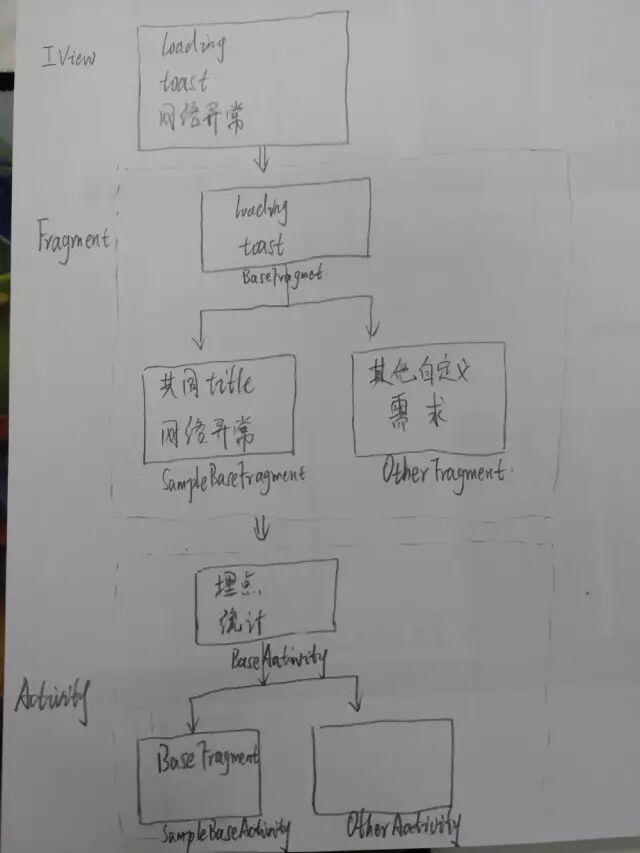 IView
loading
toast
网络异常
Fragment
loading
toast
BaseFragmet
共同title
网络异常
SampleBaseFragment
其他自定义
需求
OtherFragment.
Activity
埋点
统计
BaseAativity
BaseFragment
SampleBaseActivity
OtherAativity